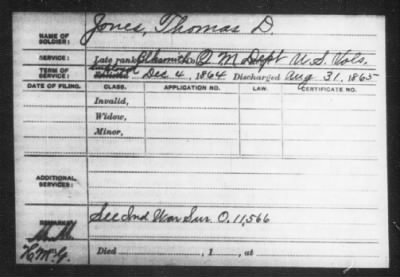 Jones, Thomas D.
NAME OF SOLDIER:
SERVICE: Late rank, Blksmith, Q M Dept U.S. Vols.
TERM OF SERVICE: Enlisted Dec 4, 1864 Discharged Aug 31, 1865
DATE OF FILING. CLASS. APPLICATION NO. LAW. CERTIFICATE NO.
Invalid,
Widow,
Minor,
ADDITIONAL SERVICES:
REMARKS: See Ind War Sur. O. 11,566
Died , 1 , at